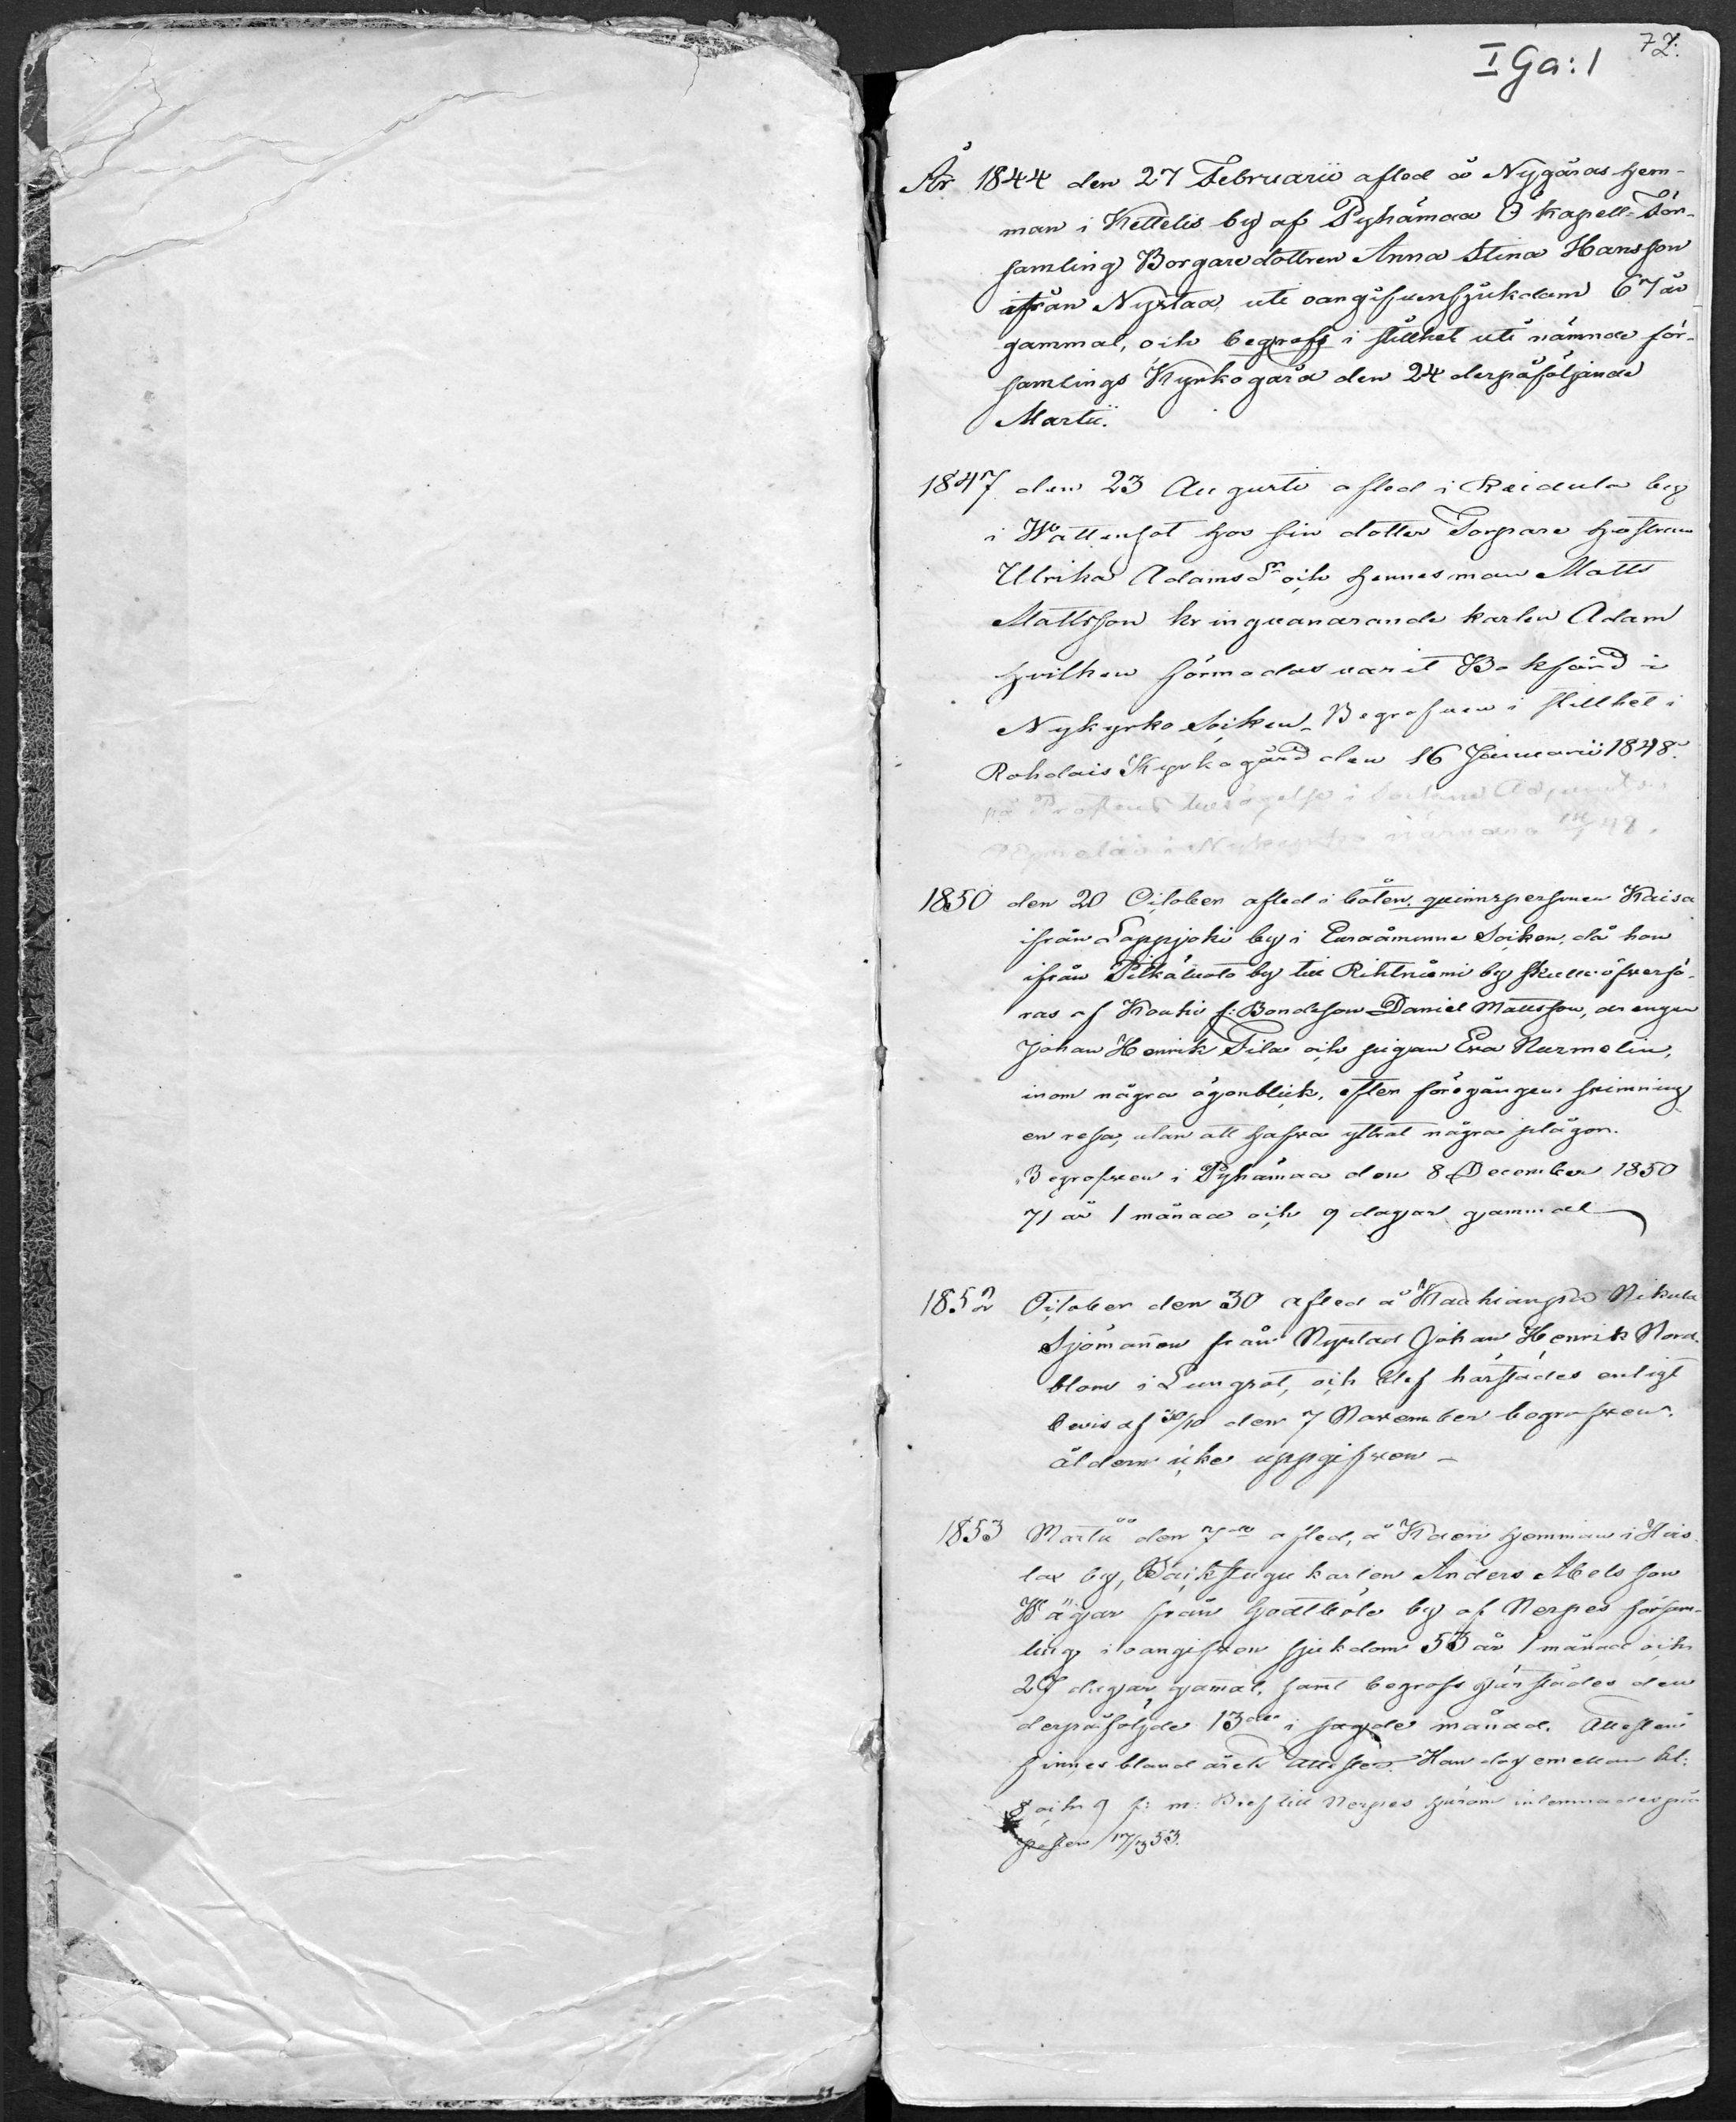 I Ga:1
72.
År 1844 den 27 Februarii afled å Nygårds hem-
man i Kettelis by af Pyhämaa Ö kapell-För-
samling Borgaredottren Anna Stina Hansson
ifrån Nystad, uti oangifven sjukdom 67 år
gammal, och begrofs i stillhet uti nämnde för-
samlings Kyrkogård den 24 derpåföljande
Martii.
1847 den 23 Augusti afled i Raidula by
i hos sin dotter Torpare hustrun
Ulrika Adamsdr och hennes man Matts
Mattsson kringvandrande karlen Adam
hvilken förmodas varit Bokförd i
Nykyrko Socken. Begrafven i stillhet i
Rohdais Kyrkogård den 16 Januarii 1848.
på Prostens i
i Nykyrko 48.
1850 den 20 October afled i båten qvinnspersonen Kaisa
ifrån Lappjoki by i Euraåminne Socken, då hon
ifrån Pitkäluoto by till Rihtniemi by skulle öfverfö-
ras af Kouki f: Bondeson Daniel Mattsson, drengen
Johan Henrik Fila och pigan Eva Nurmelin,
inom några ögonblick, efter föregången svimning
en resa, utan att hafva yttrat några plågor.
Begrafven i Pyhämaa den 8 December 1850
71 år 1 månad och 9 dagar gammal
1852 October den 30 afled å Nikula
Sjömannen från Nystad Johan Henrik Nord-
blom i Lungsot, och blef härstädes enligt
bevis af 30/10 den 7 November begrafven.
åldern icke uppgifven –
1853 Martii den 7de afled, å Kaeri hemman i
lax by, Bäckstugu karlen Anders Abelsson
från Gottböle by af Nerpes försam-
ling i oangifven sjukdom 53 år 1 månad och
27 dagar gamal, samt begrofs härstädes den
derpåföljde 13de i sagde månad. Attesten
finnes bland årets attester. Han dog emellan kl:
8 och 9 f: m: Bref till Nerpes härom inlemnades på
posten 17/3 53.